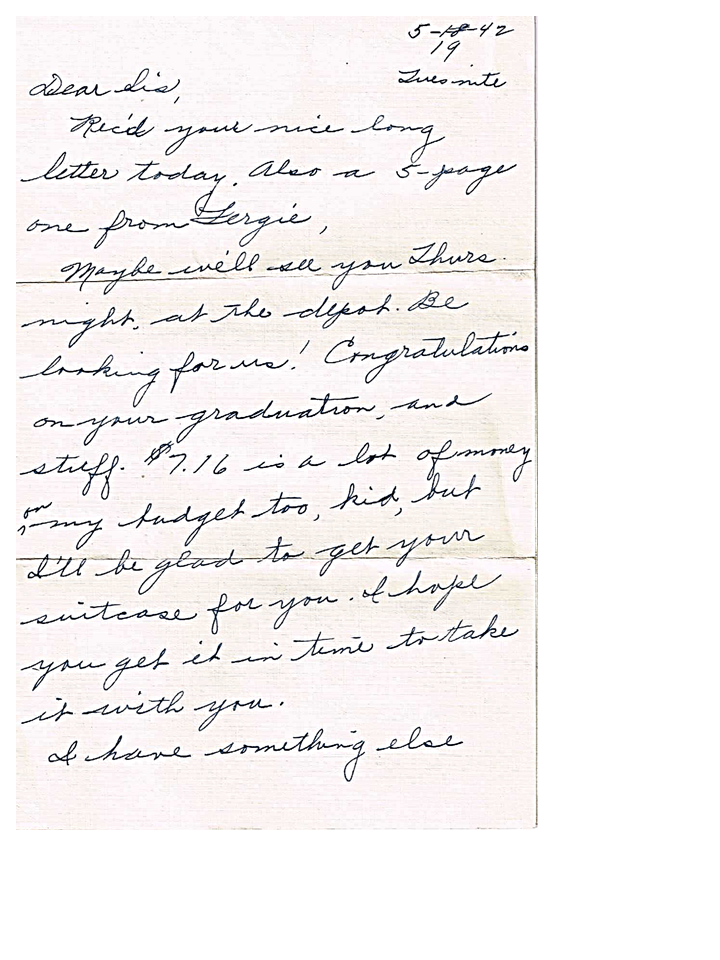 5-18-42
19
Tues nite
Dear Sis,
Rec'd your nice long
letter today. Also a 5-page
one from Fergie,
Maybe we'll see you Thurs.
night, at the depot. Be
looking for us! Congratulations
on your graduation, and
stuff. $7.16 is a lot of money
on my budget too, kid, but
I'll be glad to get your
suitcase for you. I hope
you get it in time to take
it with you.
I have something else